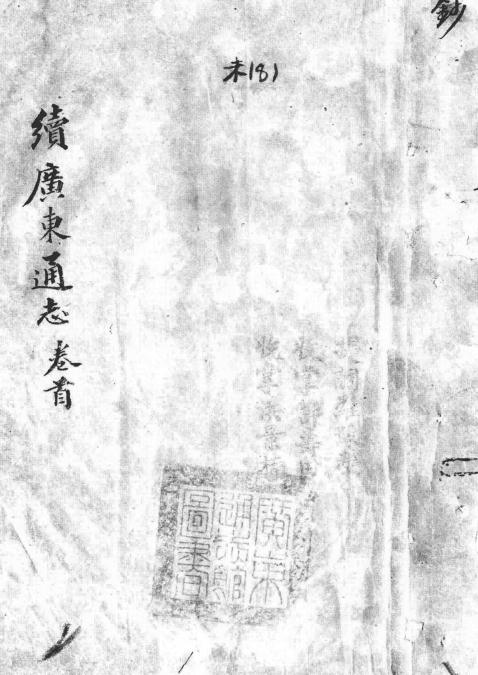 鈔
未181
續廣東通志卷首
廣東
通志館
圖書